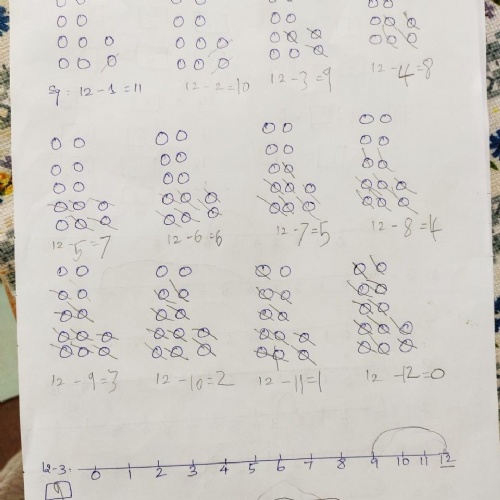 Eg: 12-1=11 12-2=10 12-3=9 12-4=8
12-5=7 12-6=6 12-7=5 12-8=4
12-9=3 12-10=2 12-11=1 12-12=0
12-3= 0 1 2 3 4 5 6 7 8 9 10 11 12
9